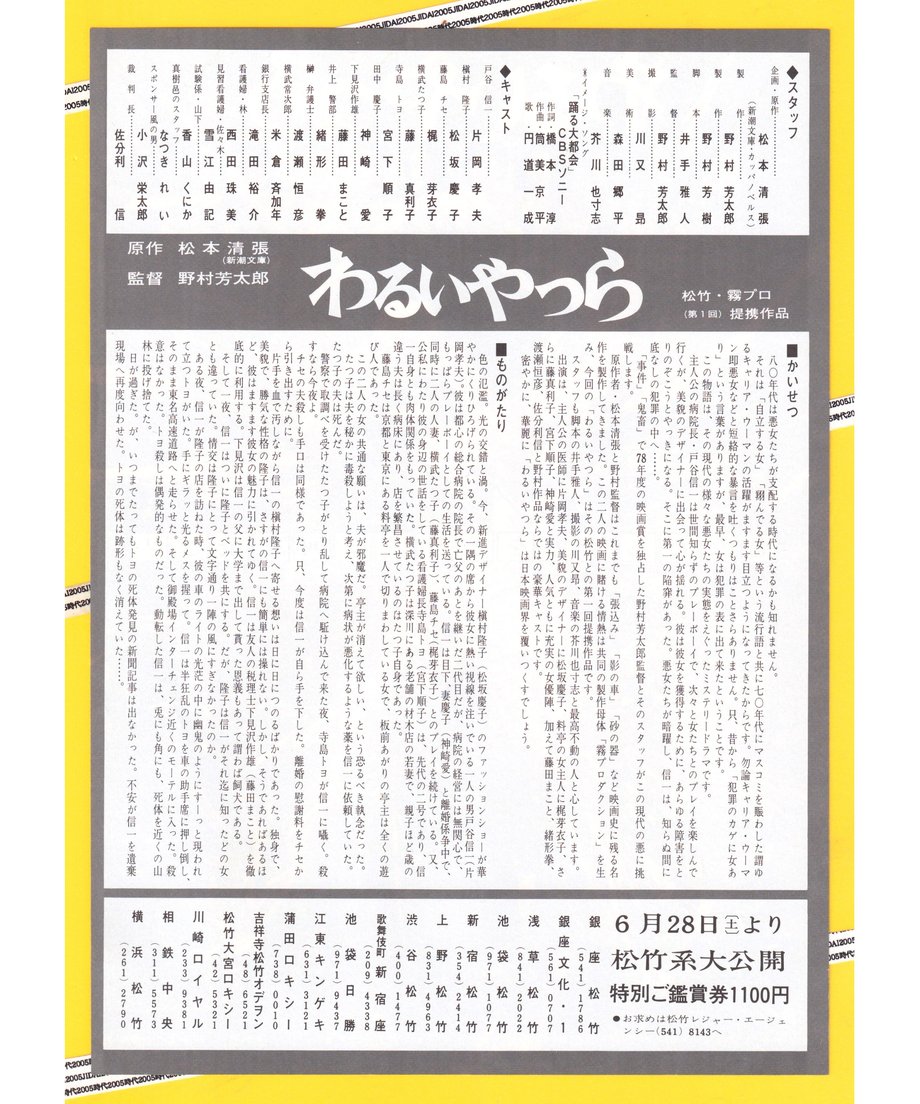 ◆スタッフ
企画・原作……松本清張
（新潮文庫・カッパノベルス）
製作……野村芳太郎
製作……野村芳樹
脚本……井手雅人
監督……野村芳太郎
撮影……川又昻
美術……森田郷平
音楽……芥川也寸志
イメージ・ソング
「踊る大都会」CBSソニー
作詞・橋本淳
作曲・筒美京平
歌・円道一成
◆キャスト
戸谷信一……片岡孝夫
槇村隆子……松坂慶子
藤島チセ……梶芽衣子
横武たつ子……藤真利子
寺島トヨ……宮下順子
田中慶子……神崎愛
下見沢作雄……藤田まこと
井上警部……緒形拳
榊弁護士……渡瀬恒彦
横武常次郎……米倉斉加年
銀行支店長……滝田裕介
看護婦・林……西田珠美
見習看護婦・佐々木……雪江由記
試験係・山下……香山くにか
真樹邑のスタッフ……なつきれい
スポンサー風の男……小沢栄太郎
裁判長……佐分利信
原作 松本清張
（新潮文庫）
監督 野村芳太郎
わるいやつら
松竹・霧プロ
（第1回）提携作品
■かいせつ
八〇年代は悪女たちが支配する時代になるかも知れません。
それは、「自立する女」「翔んでる女」等という流行語と共に七〇年代にマスコミを賑わした謂ゆ
るキャリア・ウーマンの活躍がますます目立つようになってきたからです。勿論キャリア・ウーマ
ン即悪女などと短絡的な暴言を吐くつもりはことさらありません。只、昔から「犯罪のカゲに女あ
り」という言葉がありますが、最早、女は犯罪の表に出て来たということです。
この物語は、その現代の様々な悪女たちの実態をえぐったミステリードラマです。
主人公の病院長・戸谷信一は世間知らずのプレーボーイで、次々と女たちとのプレイを楽しんで
行くが、美貌のデザイナーに出会って心が揺れる。彼は彼女を獲得するために、あらゆる障害をと
りのぞこうとやっきになる。そこに第一の陥穽があった。悪女たちが暗躍し、信一は、知らぬ間に
底なしの犯罪の中へ……。
「事件」「鬼畜」で78年度の映画賞を独占した野村芳太郎監督とそのスタッフがこの現代の悪に挑
戦します。
原作者・松本清張と野村監督はこれまでも「張込み」「影の車」「砂の器」など映画史に残る名
作を製作してきました。この二人の映画に賭ける情熱は共同の製作母体「霧プロダクション」を生
み、今回「わるいやつら」はその松竹との第一回提携作品です。
スタッフも脚本の井手雅人、撮影の川又昻、音楽の芥川也寸志と最高不動の人と心しています。
出演は、主人公の医師に片岡孝夫、美貌のデザイナーに松坂慶子、料亭の女主人に梶芽衣子、さ
らに藤真利子、宮下順子、神崎愛と実力、人気ともに充実の女優陣、加えて藤田まこと、緒形拳、
渡瀬恒彦、佐分利信と野村作品ならではの豪華キャストです。
密やかに、華麗に「わるいやつら」は日本映画界を覆いつくすでしょう。
■ものがたり
色の氾濫。光の交錯と渦。今、新進デザイナー槇村隆子（松坂慶子）のファッションショーが華
やかにくりひろげられている。その一隅の席から彼女に熱い視線を注いでいる一人の男戸谷信一（片
岡孝夫）。彼は都心の総合病院の院長で亡父のあとを継いだ二代目だが、病院の経営には無関心で、
もっぱらプレーボーイとしての生活を送っている。信一は目下、妻慶子（神崎愛）と離婚係争中で、
同時に二人の人妻、横武たつ子（藤真利子）、藤島チセ（梶芽衣子）とのプレイを続けている。又、
公私にわたり彼の身辺の世話をしている看護婦長寺島トヨ（宮下順子）は、先代の二号であり、信
一自身とも肉体関係をもっていた。横武たつ子は深川にある老舗の材木店の若妻で、親子ほど歳の
違う夫は長く病床にあり、店を繁昌させているのはたつ子自身であった。
藤島チセは京都と東京にある料亭を一人で切りまわしている女で、板前あがりの亭主は全くの遊
び人であった。
この二人の女の共通な願いは、夫が邪魔だ。亭主が消えて欲しい、という恐るべき執念だった。
たつ子は夫を秘かに毒殺しようと考え、次第に病状が悪化するような薬を信一に依頼していた。
たつ子の夫は死んだ。
警察で取調べを受けたたつ子がとり乱して病院へ駆け込んで来た夜、寺島トヨが信一に囁く。殺
すなら今夜よ。
チセの夫殺しも手口は同様であった。只、今度は信一が自ら手を下した。離婚の慰謝料をチセか
ら引き出すために。
片手を血で汚しながら信一の槇村隆子へ寄せる想いは日に日につのるばかりであった。独身で、
美貌で、勝気な性格の隆子は、さすがの信一にも簡単には操れない。しかし、そうであればあるほ
ど、彼はますます彼女の魅力に引かれてゆく。信一は友人の税理士下見沢作雄（藤田まこと）を徹
底的に利用する。下見沢は信一の父に大学まで出して貰った恩義もあって謂わば飼犬である。
そして一夜、信一はついに隆子とベッドを共にする。だが、隆子は信一がそれ迄に知ったどの女
とも違っていた。情交は隆子にとって文字通り一陣の風にすぎなかったのか。
ある夜、信一が隆子の店を訪ねた時、彼の車のライトの光芒の中に幽鬼のようにすーっと現われ
て立つトヨがいた。手にギラッと光るメスを握って。信一は半狂乱のトヨを車の助手席に押し倒し、
そのまま東名高速道路へと走らせた。そして御殿場インターチェンジに近くのモーテルに入った。殺
意はなかった。トヨ殺しは偶発的なものだった。動転した信一は、兎にも角にも、死体を近くの山
林に投げ捨てた。
日が過ぎた。が、いつまでたってもトヨの死体発見の新聞記事は出なかった。不安が信一を遺棄
現場へ再度向わせた。トヨの死体は跡形もなく消えていた……。
6月28日㊏より
松竹系大公開
特別ご鑑賞券1100円
●お求めは松竹レジャー・エージェ
ンシー(541) 8143へ
銀座松竹 (541) 1786
銀座文化・1 (561) 0707
浅草松竹 (841) 8022
池袋松竹 (971) 1077
新宿松竹 (354) 2414
上野松竹 (831) 4963
渋谷松竹 (400) 1477
歌舞伎町新宿座 (209) 4338
池袋日勝 (971) 9437
江東キンゲキ (631) 3121
蒲田ロキシー (738) 0010
吉祥寺松竹オデヲン (48) 6521
松竹大宮ロキシー (42) 5321
川崎ロイヤル (233) 9381
相鉄中央 (311) 5573
横浜松竹 (261) 2790